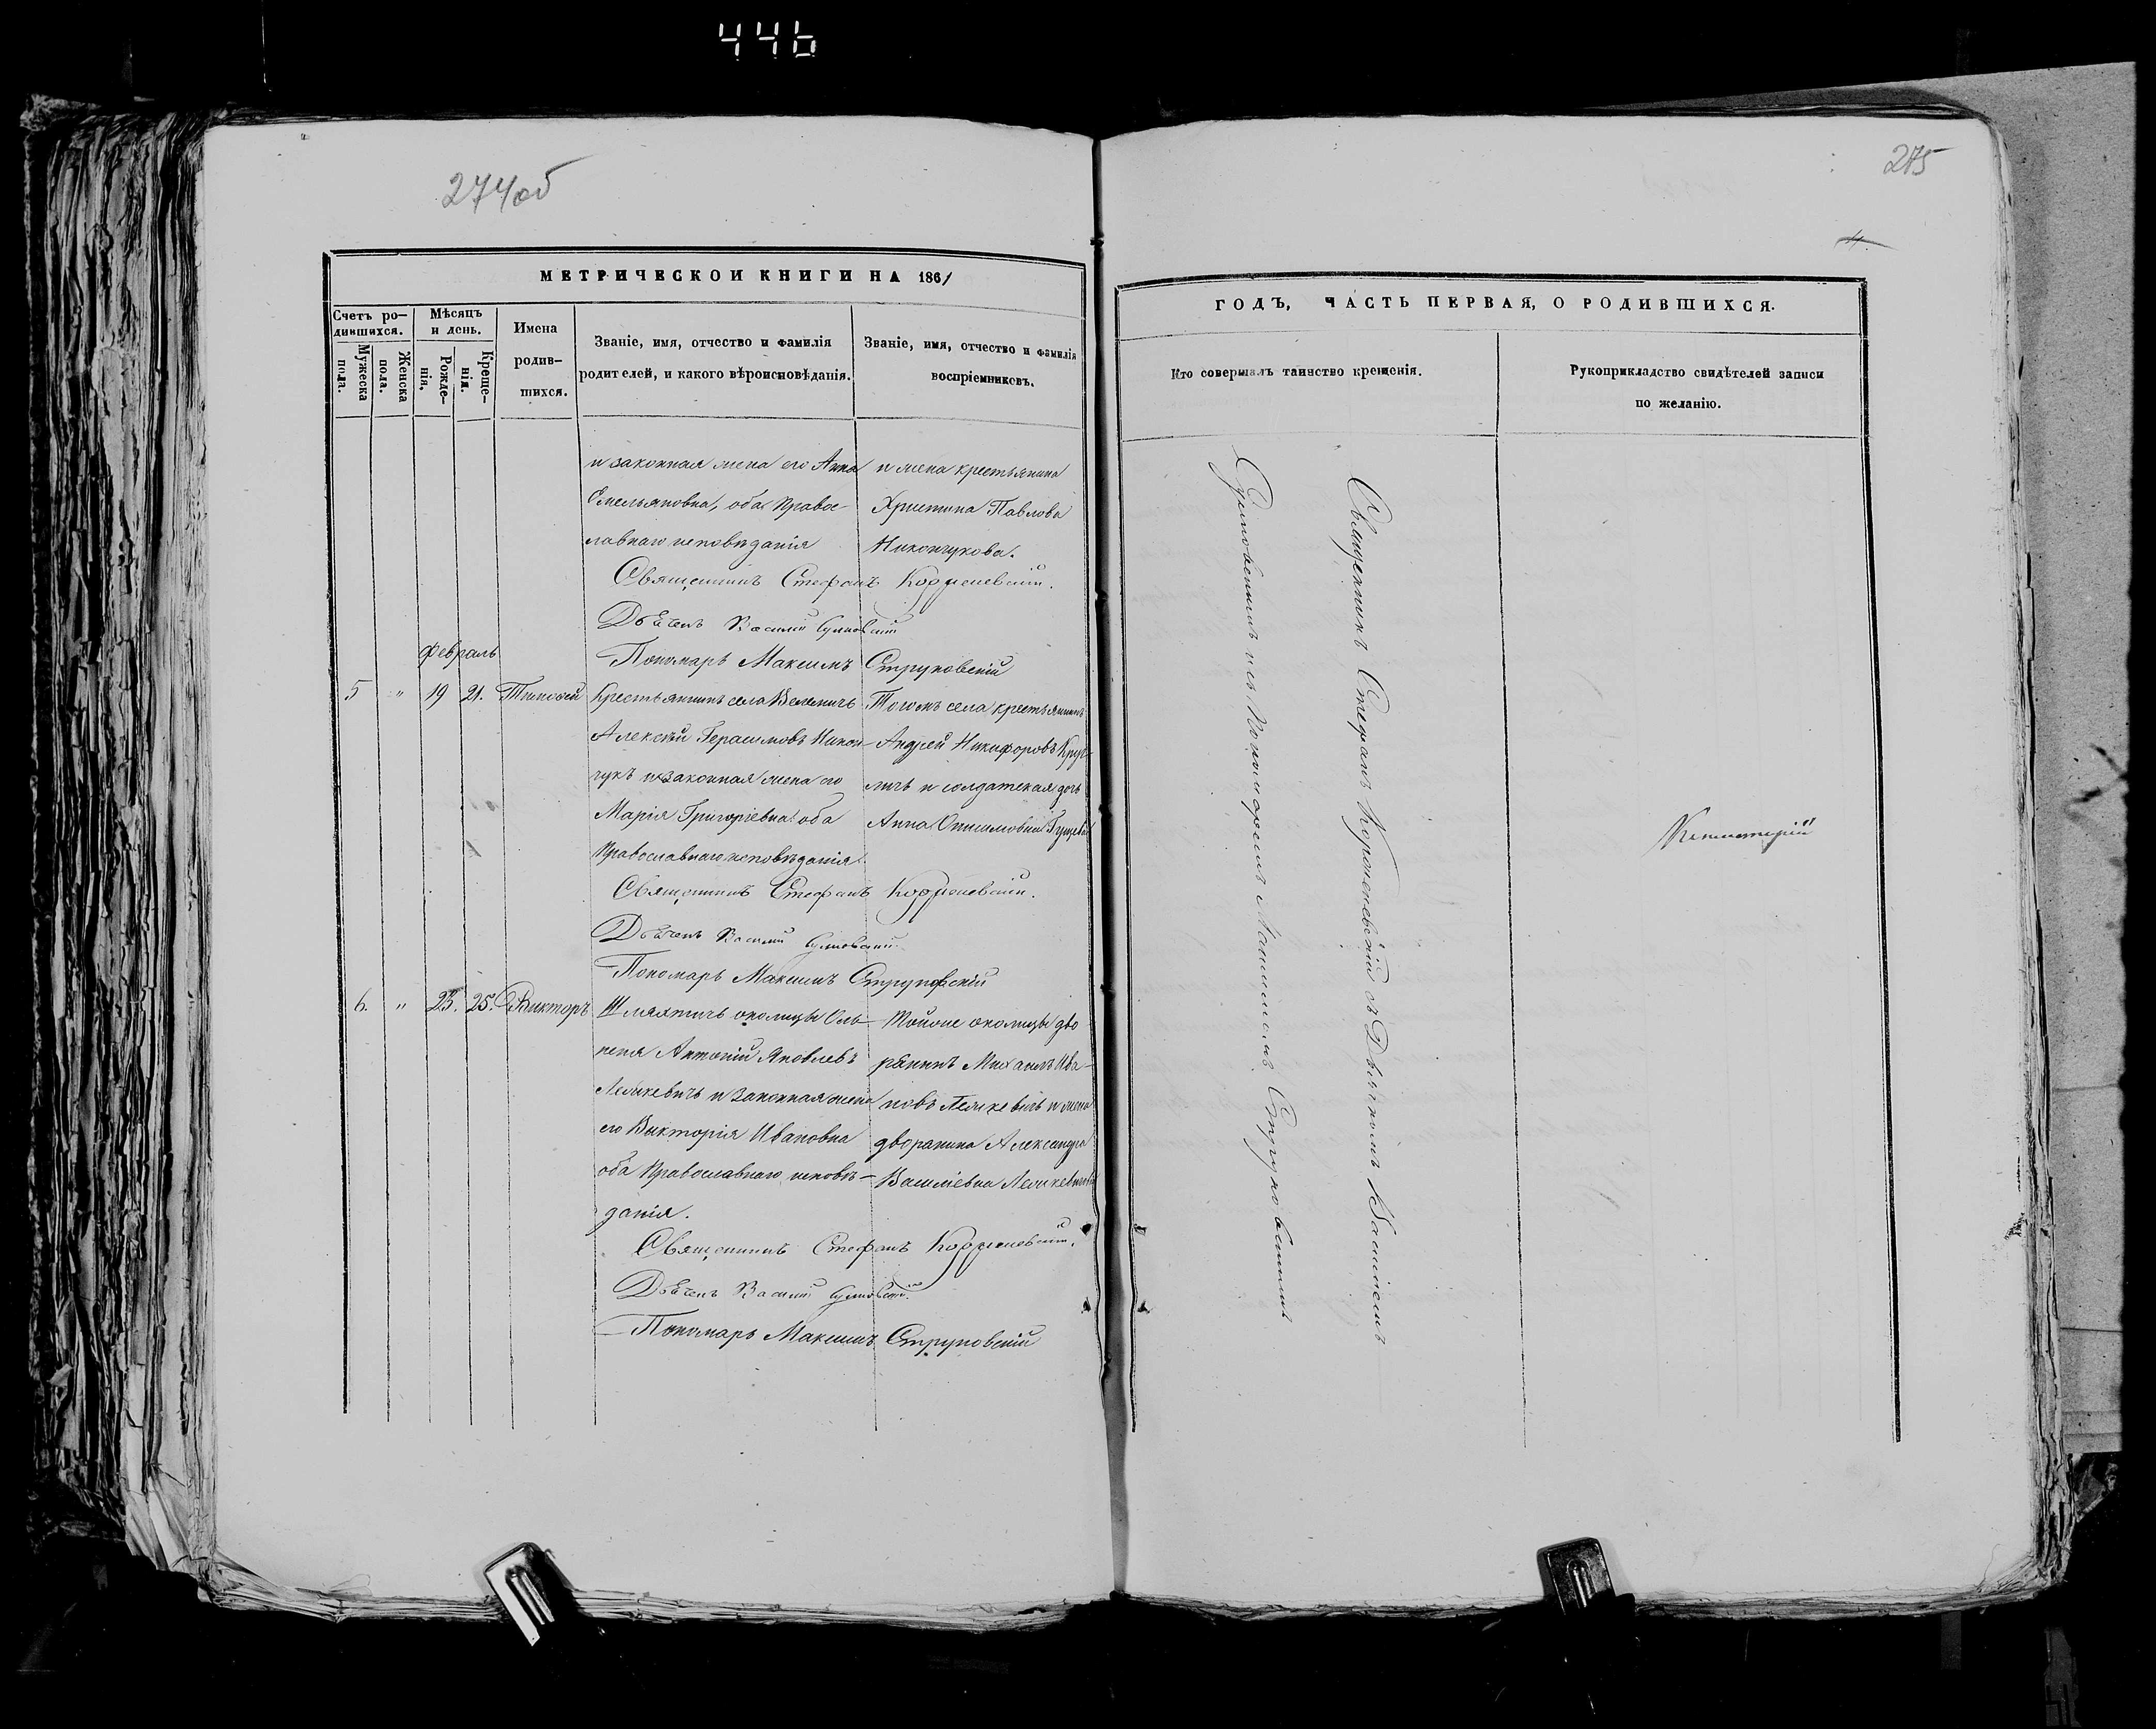 446
274об
МЕТРИЧЕСКОЙ КНИГИ НА 1861
Счетъ ро-
дившихся.
Мужеска
пола.
Женска
пола.
Мѣсяцъ
и день.
Рожде-
нія.
Креще-
нія.
Имена
родив-
шихся.
Званіе, имя, отчество и фамилія
родителей, и какого вѣроисповѣданія.
Званіе, имя, отчество и фамилія
воспріемниковъ.
и законная жена его Анна
Емельяновна, оба Правос-
лавнаго исповѣданія
и жена крестьянина
Христина Павлова
Никончукова.
Священникъ Стефанъ
Дьячекъ Василій
Пономарь Максимъ Струковскій
Февраль
5 " 19 21. Тимофей
Крестьянинъ села Велемичь
Алексѣй Герасимовъ Никон-
чукъ и законная жена его
Марія Григоріевна оба
Православнаго исповѣданія
Тогожъ села крестьянинъ
Андрей Никифоровъ
и солдатская дочь
Анна
Священникъ Стефанъ
Дьячекъ Василій
Пономарь Максимъ Струковскій
6. " 23. 25. Викторъ
Шляхтичь околицы Оль-
Антоній Яковлевъ
и законная жена
его Викторія Ивановна
оба Православнаго исповѣ-
данія.
Тойже околицы дво
рянинъ Михаилъ Ива-
новъ и жена
дворянина Александра
Василіевна
Священникъ Стефанъ
Дьячекъ Василій
Пономарь Максимъ Струковскій
275
4.
ГОДЪ, ЧАСТЬ ПЕРВАЯ, О РОДИВШИХСЯ.
Кто совершалъ таинство крещенія.
Рукоприкладство свидѣтелей записи
по желанію.
Священникъ Стефанъ съ Дьячкомъ Василіемъ
и съ Пономаремъ Максимомъ Струковскимъ